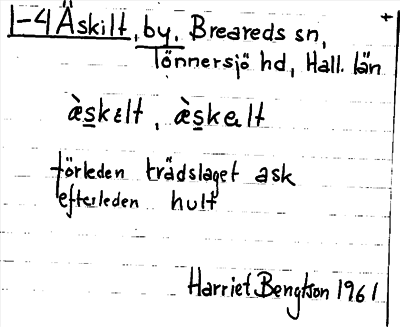 1-4 Äskilt, by. Breareds sn, +
Tönnersjö hd, Hall. län
æ̀s̲kɛlt, æ̀s̲kalt
förleden trädslaget ask
efterleden hult
Harriet Bengtson 1961